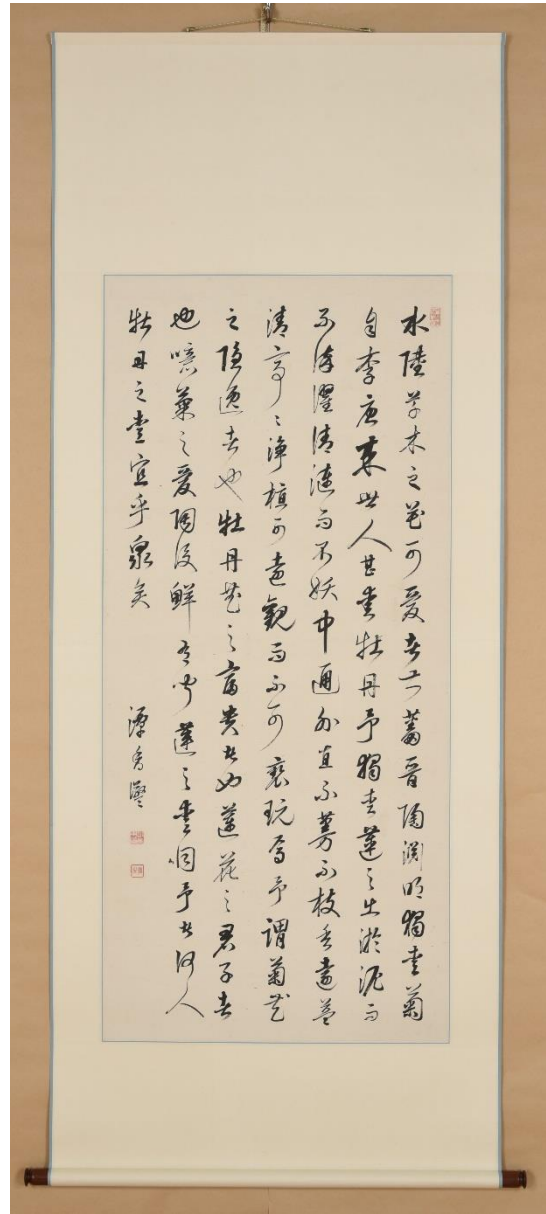 水陸草木之花可愛者甚蕃晉陶淵明獨愛菊
自李唐來世人甚愛牡丹予獨愛蓮之出淤泥而
不染濯清漣而不妖中通外直不蔓不枝香遠益
清亭〻淨植可遠觀而不可褻玩焉予謂菊花
之隱逸者也牡丹花之富貴者也蓮花之君子者
也噫菊之愛陶後鮮有聞蓮之愛同予者何人
牡丹之愛宜乎衆矣